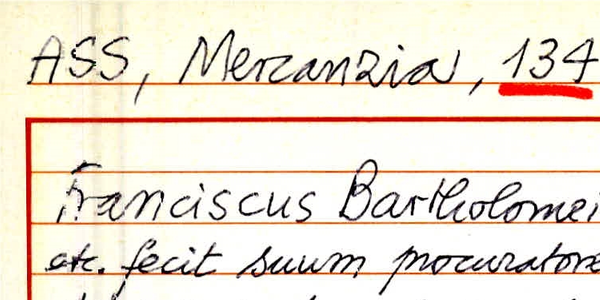 ASS, Mercanzia, 134
Franciscus Bartholomei
etc. fecit suum procuratore